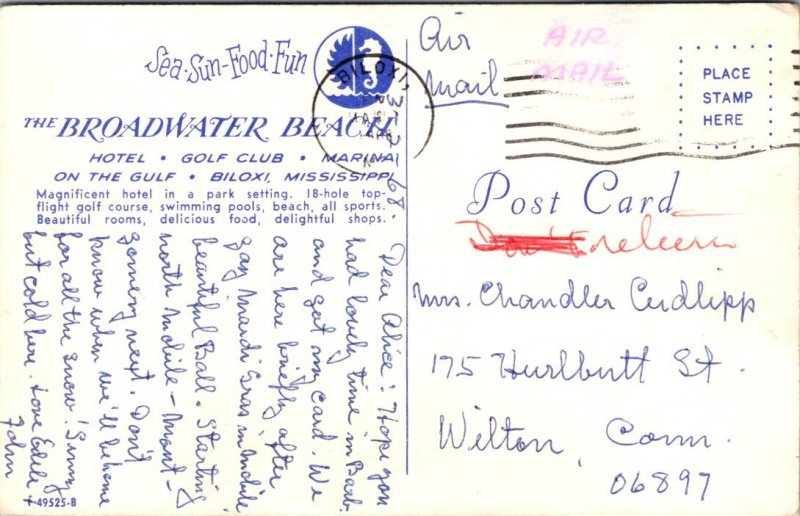 Sea·Sun·Food·Fun
THE BROADWATER BEACH
HOTEL • GOLF CLUB • MARINA
ON THE GULF • BILOXI, MISSISSIPPI
Magnificent hotel in a park setting. 18-hole top-
flight golf course, swimming pools, beach, all sports.
Beautiful rooms, delicious food, delightful shops.
BILOXI,
3-2-68.
Dear Alice: Hope you
had lovely time in Barb.
and get my card. We
are here briefly after
gay Mardi Gras in Mobile
beautiful Ball. Starting
north Mobile - Mont-
gomery next. Don't
know when we'll be home
for all the snow! Sunny
but cold here. Love
John
I-49525-B
Air
Mail
AIR
MAIL
PLACE
STAMP
HERE
Post Card
Mrs. Chandler Cudlipp
175 Hurlbutt St.
Wilton, Conn.
06897